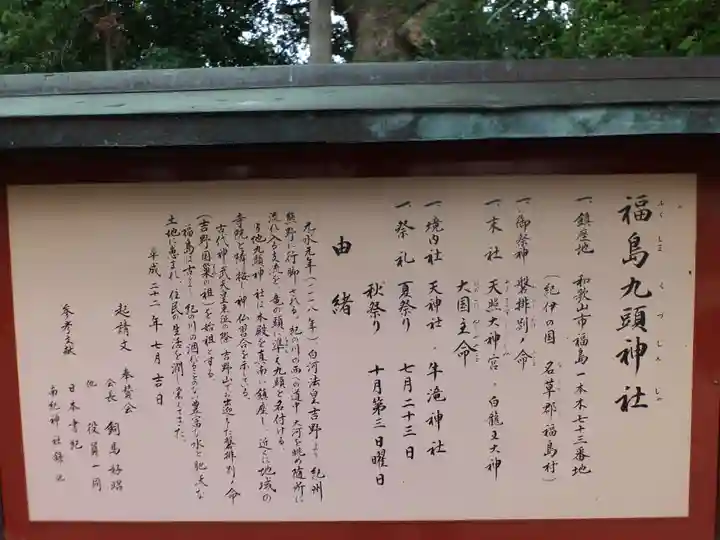 福島九頭神社
ふくしまくづじんしゃ
一、鎮座地 和歌山市福島一本木七十三番地
(紀伊の国 名草郡福島村)
一、御祭神 磐排別ノ命
一、末社 天照大神宮・白龍王大神
大国主命
一、境内社 天神社・牛滝神社
一、祭礼 夏祭り 七月二十三日
秋祭り 十月第三日曜日
由緒
元永元年(一一一八年)白河法皇吉野より紀州
熊野に行脚される。紀の川の西への道中大河を眺め随所に
流れ入る支流を竜の頭に準え九頭と名付ける
当地九頭神社は本殿を真南に鎮座し、近くに地域の
寺院と隣接し神仏習合を示ている。
古代神武天皇東征の際吉野山でお出迎えた磐排別ノ命
(吉野国巣の祖)を始祖とする。
福島は古より紀の川の涸れることのない豊富な水と肥沃な
土地に恵まれ、住民の生活を潤し来てきた。
平成二十二年七月吉日
起請文 奉賛会
会長
他 役員一同
参考文献 日本書紀
南紀神社録 他